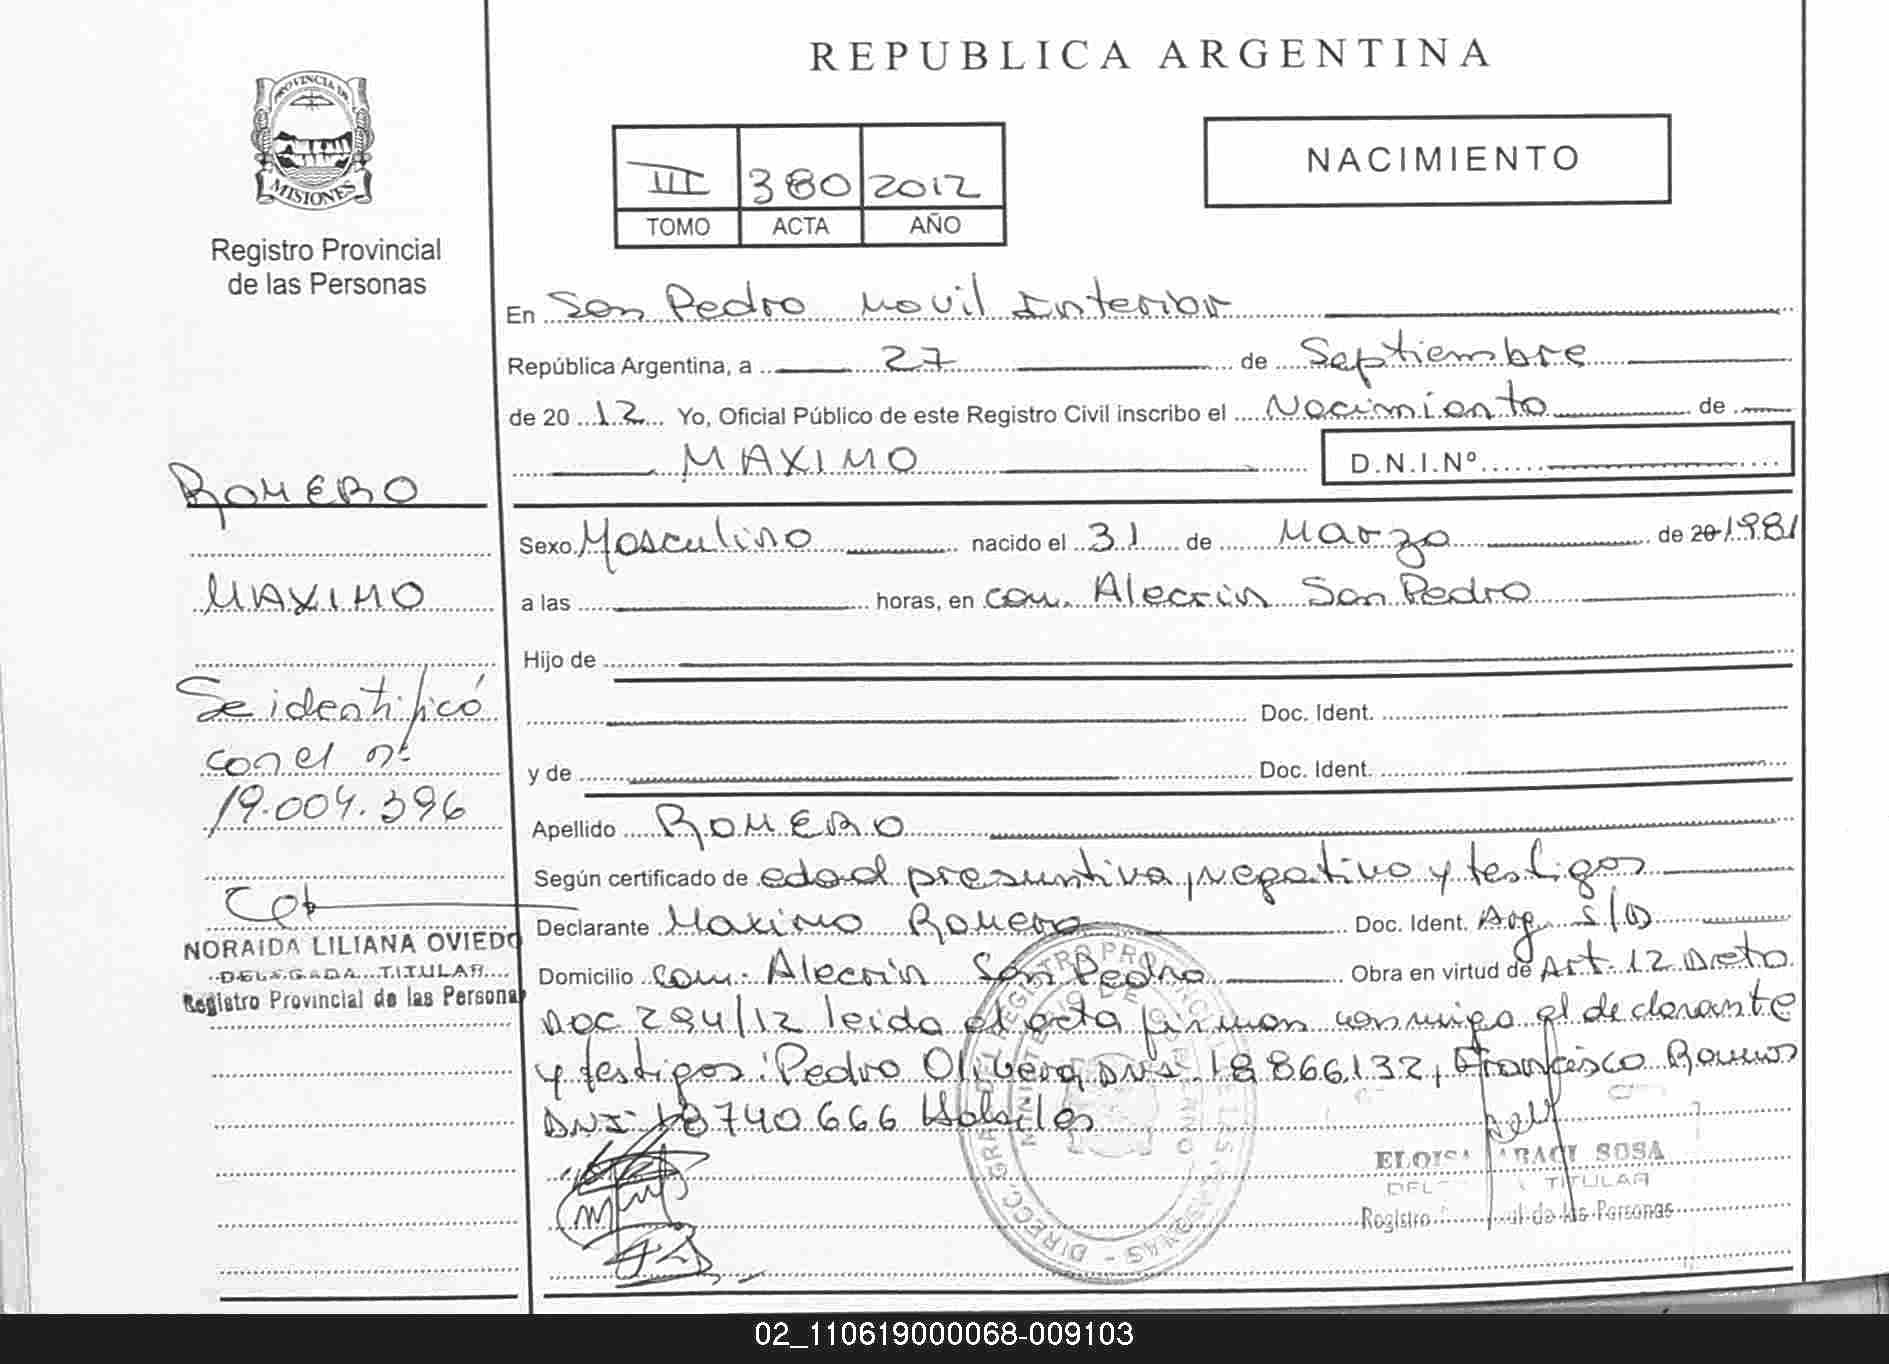 REPUBLICA ARGENTINA
PROVINCIA DE
MISIONES
Registro Provincial
de las Personas
III 380 2012
TOMO ACTA AÑO
NACIMIENTO
En San Pedro Movil Interior
República Argentina, a 27 de Septiembre
de 20 12 Yo, Oficial Público de este Registro Civil inscribo el Nacimiento de
MAXIMO D.N.I.Nº
ROMERO
MAXIMO
Se identificó
con el nº
19.004.396
NORAIDA LILIANA OVIEDO
DELEGADA TITULAR
Registro Provincial de las Personas
Sexo Masculino nacido el 31 de Marzo de 20 1981
a las horas, en com. Alecrin San Pedro
Hijo de
Doc. Ident.
y de Doc. Ident.
Apellido ROMERO
Según certificado de edad presuntiva, negativo y testigos
Declarante Maximo Romero Doc. Ident. Arg. S/D
Domicilio com. Alecrin San Pedro Obra en virtud de Art. 12 Dreto
294/12 leida el acta firman conmigo el declarante
y testigos: Pedro Olivera DNI. 18866.132, Francisco Ramos
DNI 18740666 Habiles
ELOISA SOSA
TITULAR
Registro de las Personas
02_110619000068-009103